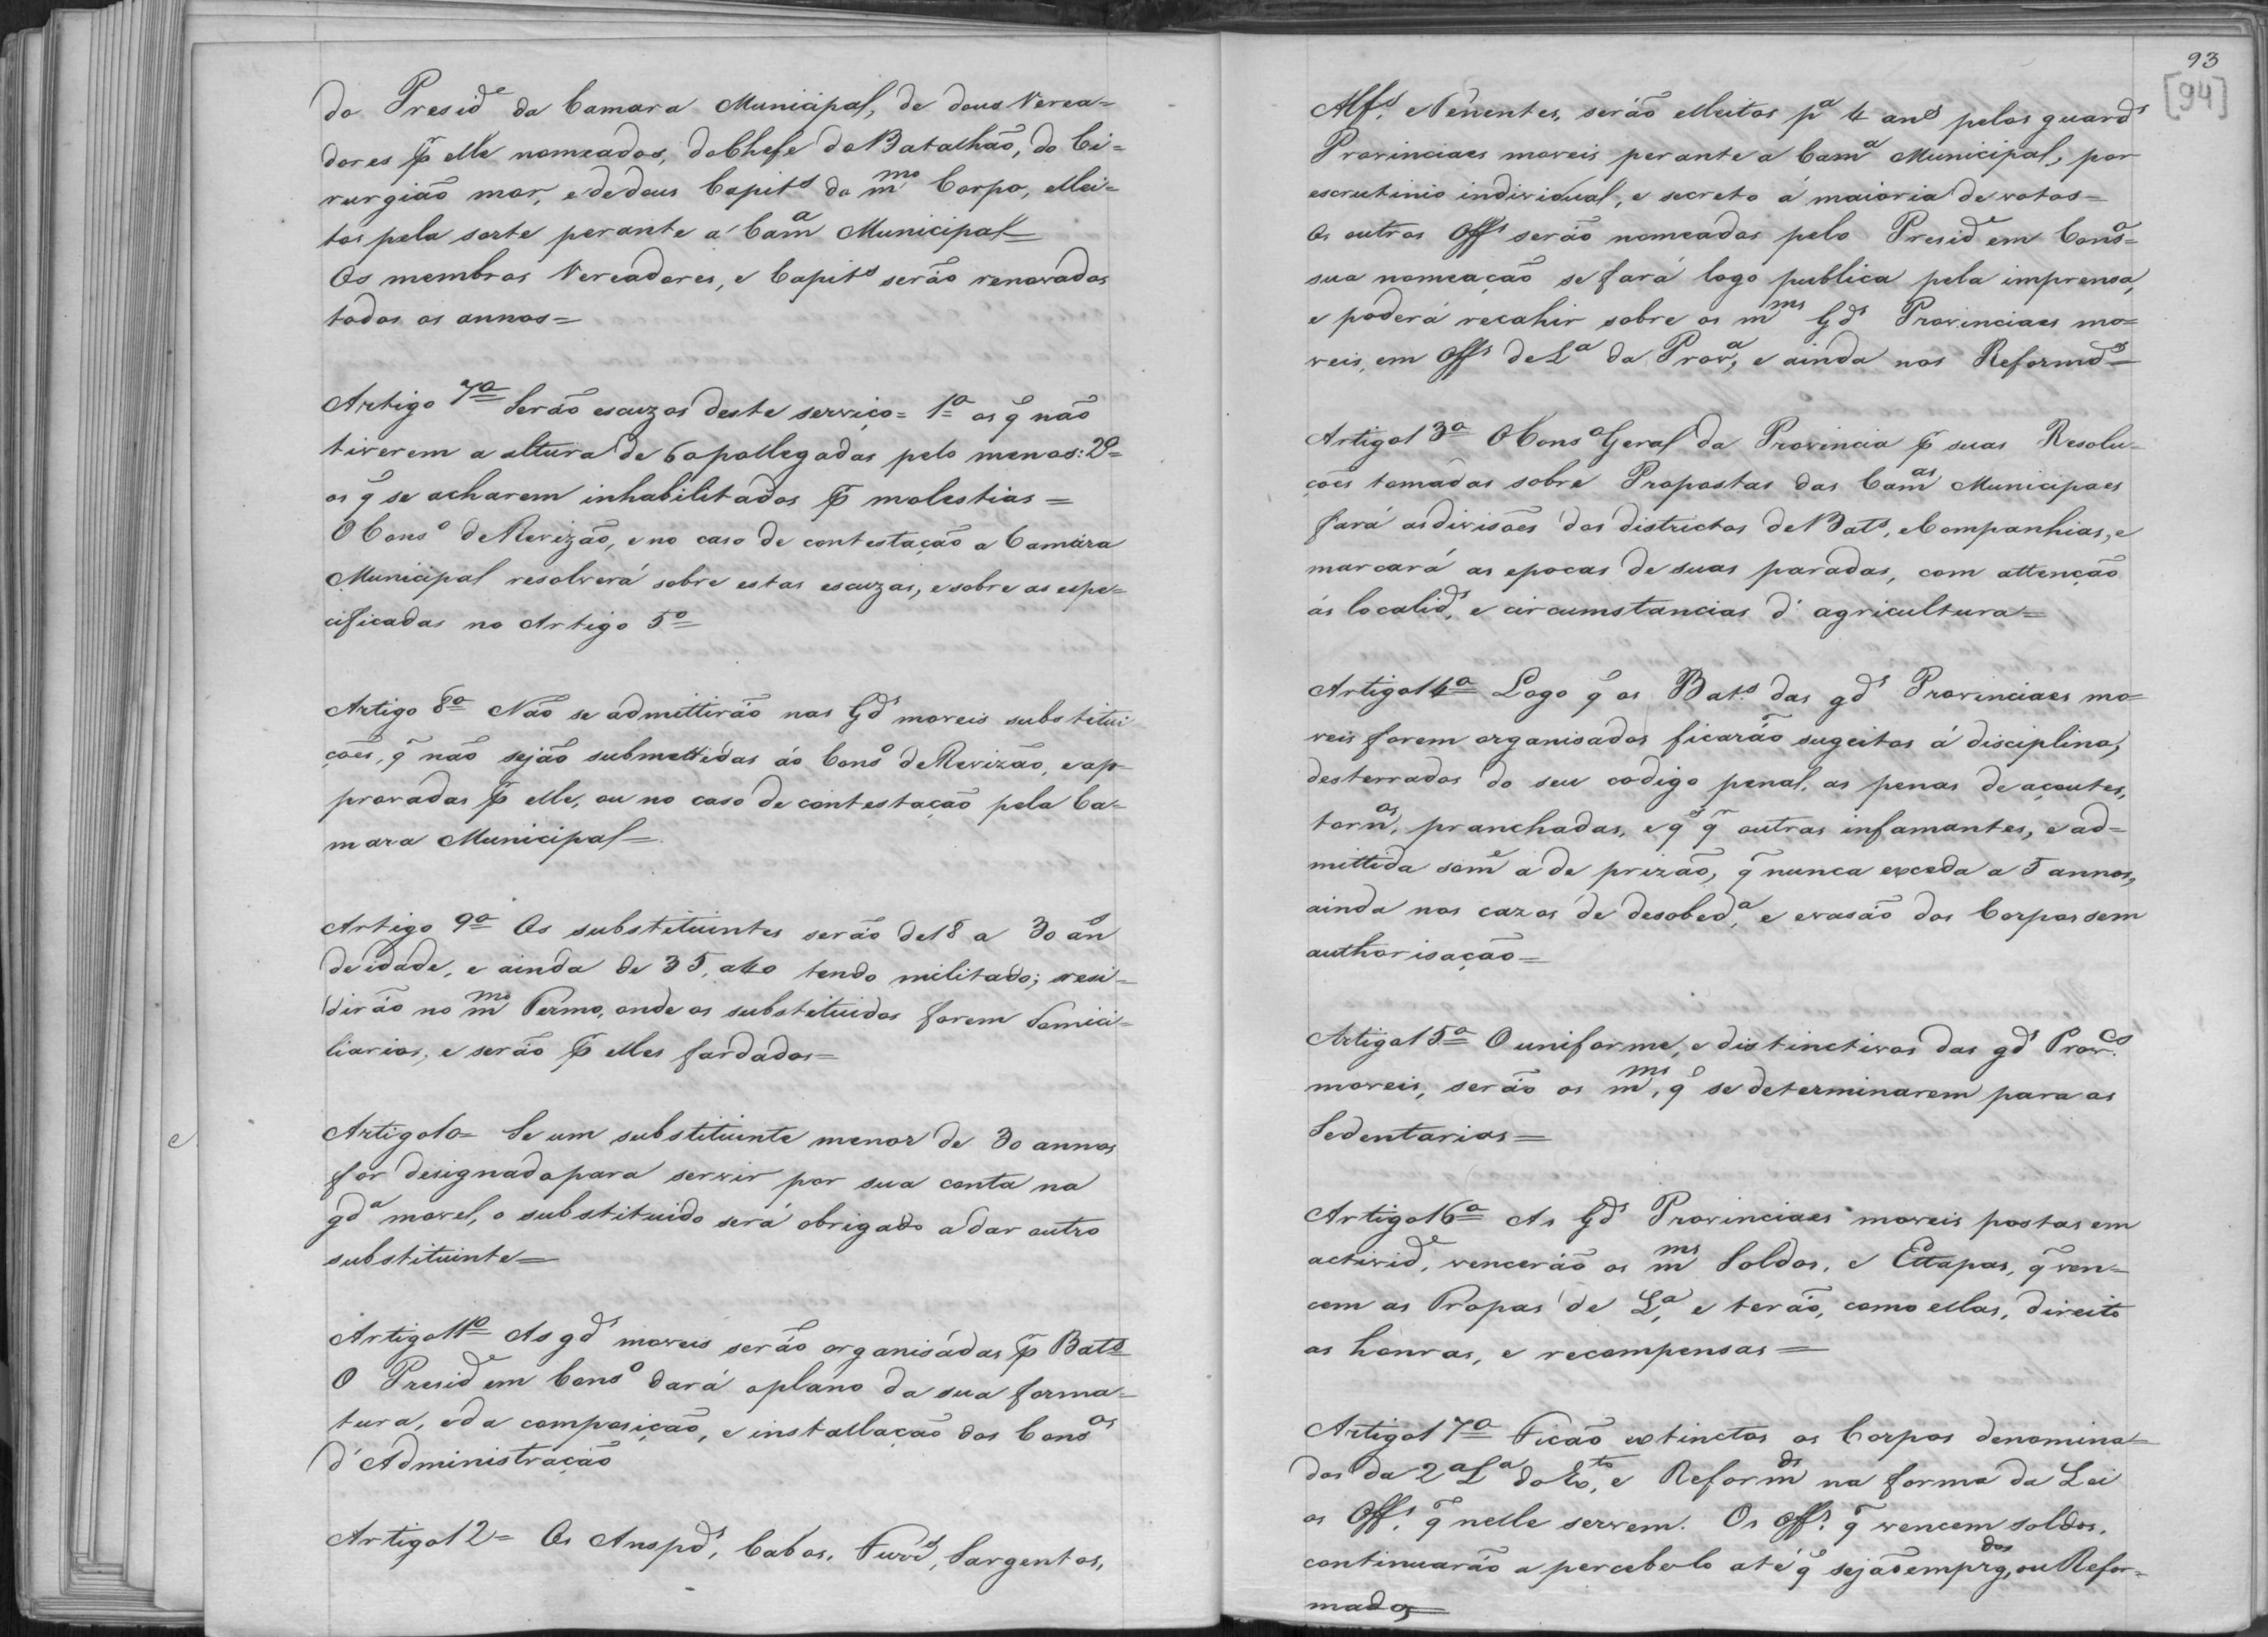 do Presid.e da Camara Municipal, de dous Verea=
dores p elle nomeados, do Chefe do Batalhão, do Ci=
rurgião mor, e de dous Capit.s do m.mo Corpo, ellei=
tos pela sorte perante a Cam.a Municipal=
Os membros Vereadores, e Capit.s serão renovados
todos os annos=
Artigo 7º Serão escuzos deste serviço= 1º os q̃ não
tiverem a altura de 60 pollegadas pelo menos: 2º=
os q̃ se acharem inhabilitados p molestias=
O Cons.o de Revizão, e no caso de contestação a Camara
Municipal resolverá sobre estas escuzas, e sobre as espe=
cificadas no Artigo 5º
Artigo 8º Não se admittirão nas G.ds moveis substitui
ções, q̃ não sejão submettidas áo Cons.o de Revizão, e ap=
provadas p elle, ou no caso de contestação pela Ca=
mara Municipal=
Artigo 9º Os substituintes serão de 18 a 30 an.s
de idade, e ainda de 35, a 40 tendo militado; resi=
dirão no m.mo Termo, onde os substituidos forem domici=
liarios, e serão p elles fardados=
Artigo 10= Se um substituinte menor de 30 annos
for designado para servir por sua conta na
g.da movel, o substituido será obrigado a dar outro
substituinte=
Artigo 11º As g.ds moveis serão organisádas p Bat.s
O Presid.e em Cons.o dará o plano da sua forma=
tura, e da composição, e installação dos Cons.os
d'Administração
Artigo 12= Os Anspd.s, Cabos, Furr.s, Sargentos,
93
[94]
Alf.s, e Tenentes, serão elleitos p.a 4 an.s pelos guard.s
Provinciaes moveis perante a Cam.a Municipal, por
escrutinio individual, e secreto á maioria de votos=
Os outros Off.s serão nomeados pelo Presid.e em Cons.o=
sua nomeação se fará logo publica pela imprensa,
e poderá recahir sobre os m.mos G.ds Provinciaes mo=
veis, em Off.s de L.a da Prov.a, e ainda nos Reformd.s=
Artigo 13º O Cons.o Geral da Provincia p suas Resolu=
ções tomadas sobre Propostas das Cam.as Municipaes
fará as divisões dos districtos de Bat.s, e Companhias, e
marcará as epocas de suas paradas, com attenção
ás localid.s, e circumstancias d'agricultura=
Artigo 14º Logo q̃ os Bat.s das g.ds Provinciaes mo=
veis forem organisados ficarão sugeitos á disciplina,
desterrados do seu codigo penal, as penas de açoutes,
torn.os, pranchadas, e q.s q.r outras infamantes, e ad=
mittida som.e a de prizão, q̃ nunca exceda a 5 annos,
ainda nos cazos de desobed.a, e evasão dos Corpos sem
authorisação=
Artigo 15º O uniforme, e distinctivos das g.ds Prov.es
moveis, serão os m.mos, q̃ se determinarem para as
Sedentarias=
Artigo 16º As G.ds Provinciaes moveis postas em
activid.e, vencerão os m.mos Soldos, e Ettapas, q̃ ven=
cem as Tropas de L.a, e terão, como ellas, direito
as honras, e recompensas=
Artigo 17º Ficão extinctos os Corpos denomina=
dos da 2ª L.a do Ex.to, e Reform.dos na forma da Lei
os Off.s q̃ nelle servem. Os Off.s q̃ vencem soldos,
continuarão a percebe-lo até q̃ sejão empr.g.dos, ou Refor=
mados=